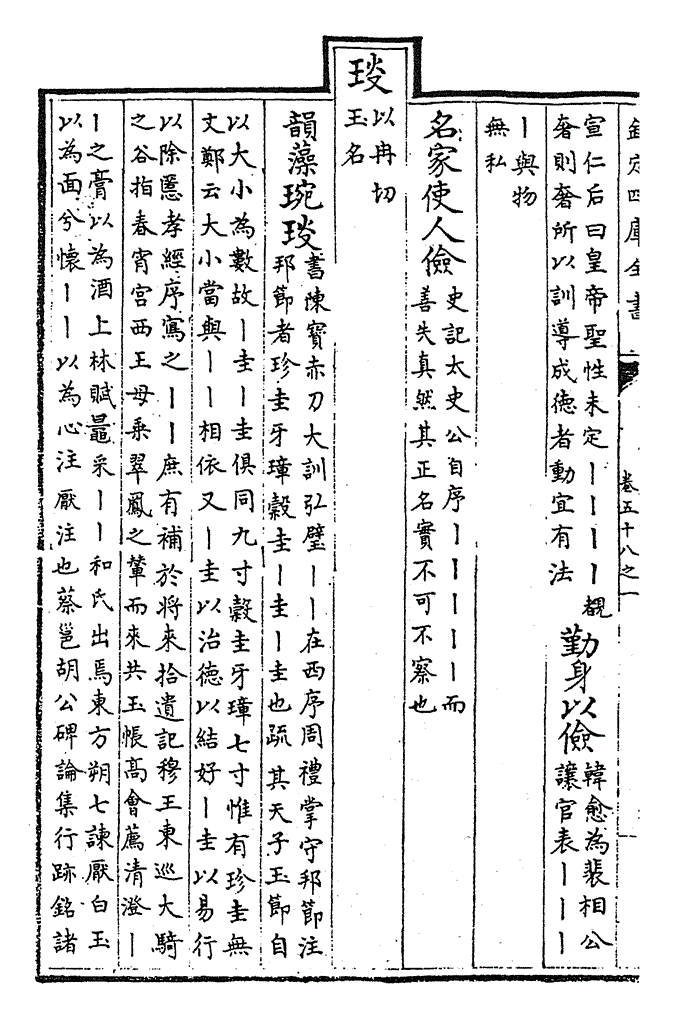 欽定四庫全書
卷五十八之一
宣仁后曰皇帝聖性未定丨丨丨丨覩
奢則奢所以訓導成德者動宜有法
勤身以儉
韓愈為裴相公
讓官表丨丨丨
丨與物
無私
名家使人儉
史記太史公自序丨丨丨丨丨而
善失真然其正名實不可不察也
琰
以冉切
玉名
韻藻琬琰
書陳寳赤刀大訓弘璧丨丨在西序周禮掌守邦節注
邦節者珍圭牙璋榖圭丨圭丨圭也疏其天子玉節自
以大小為數故丨圭丨圭俱同九寸榖圭牙璋七寸惟有珍圭無
文鄭云大小當與丨丨相依又丨圭以治德以結好丨圭以易行
以除慝孝經序寫之丨丨庶有補於將來拾遺記穆王東巡大騎
之谷指春宵宮西王母乘翠鳳之輦而來共玉帳高會薦清澄丨
丨之膏以為酒上林賦鼂采丨丨和氏出焉東方朔七諫厭白玉
以為面兮懷丨丨以為心注厭注也蔡邕胡公碑論集行跡銘諸